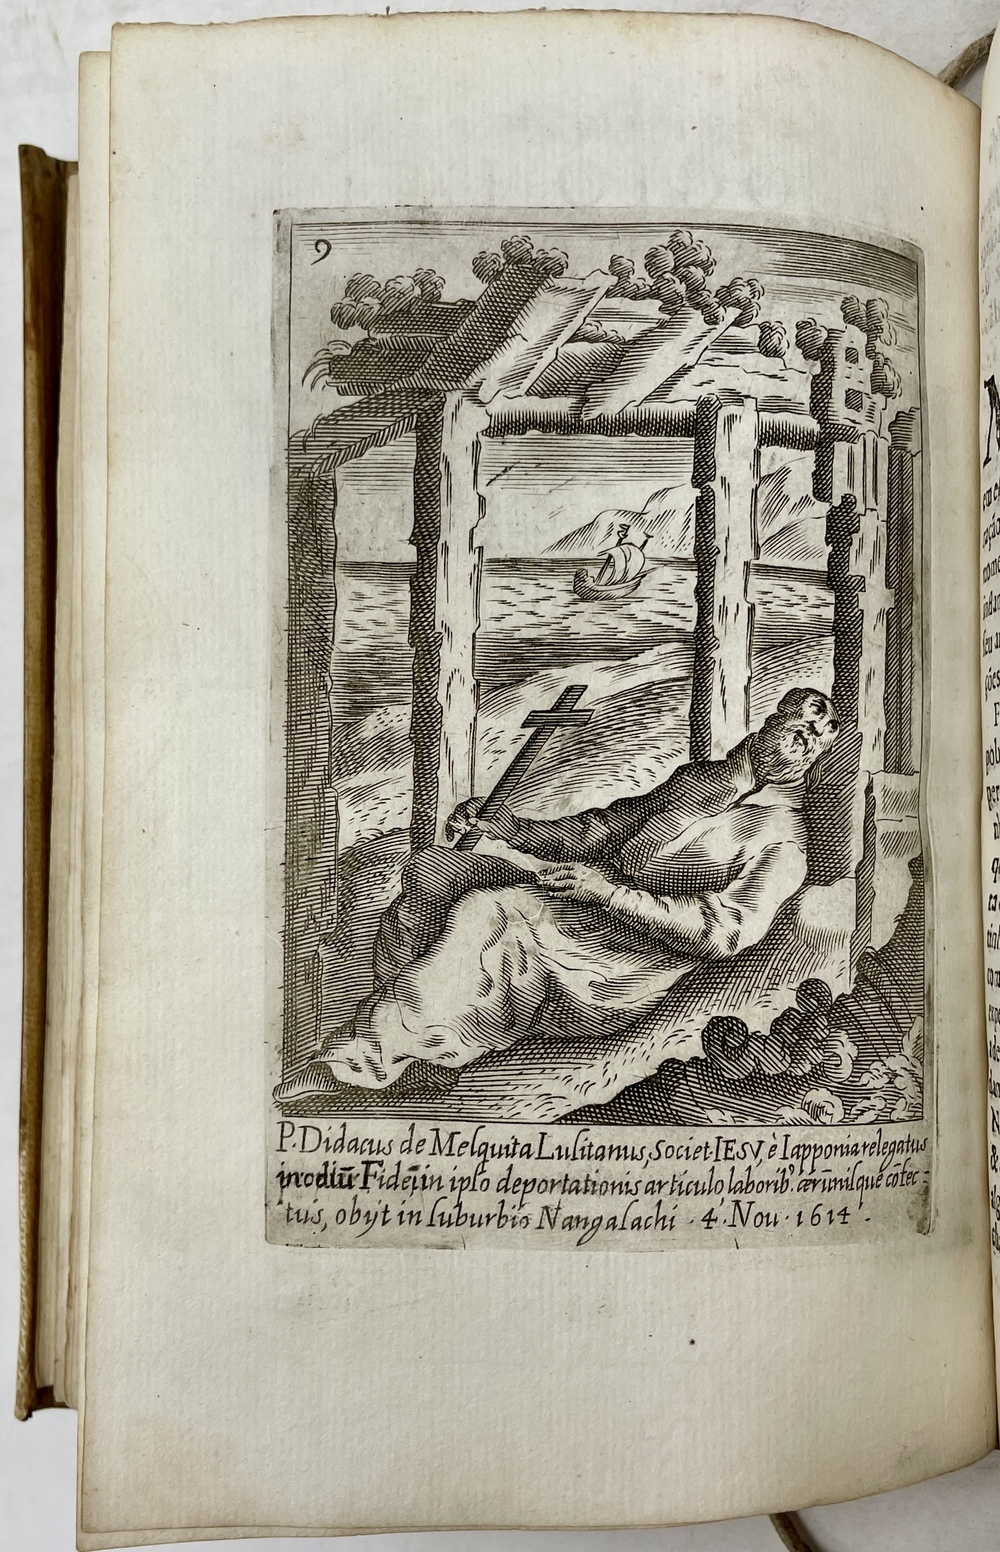 9
P. Didacus de Mesquita Lusitanus, Societ. IESV, è Iapponia relegatus
in odiũ Fidei, in ipso deportationis articulo laborib⁹. ærũnisque cõfec-
tus, obijt in suburbio Nangasachi · 4 · Nou · 1614 ·